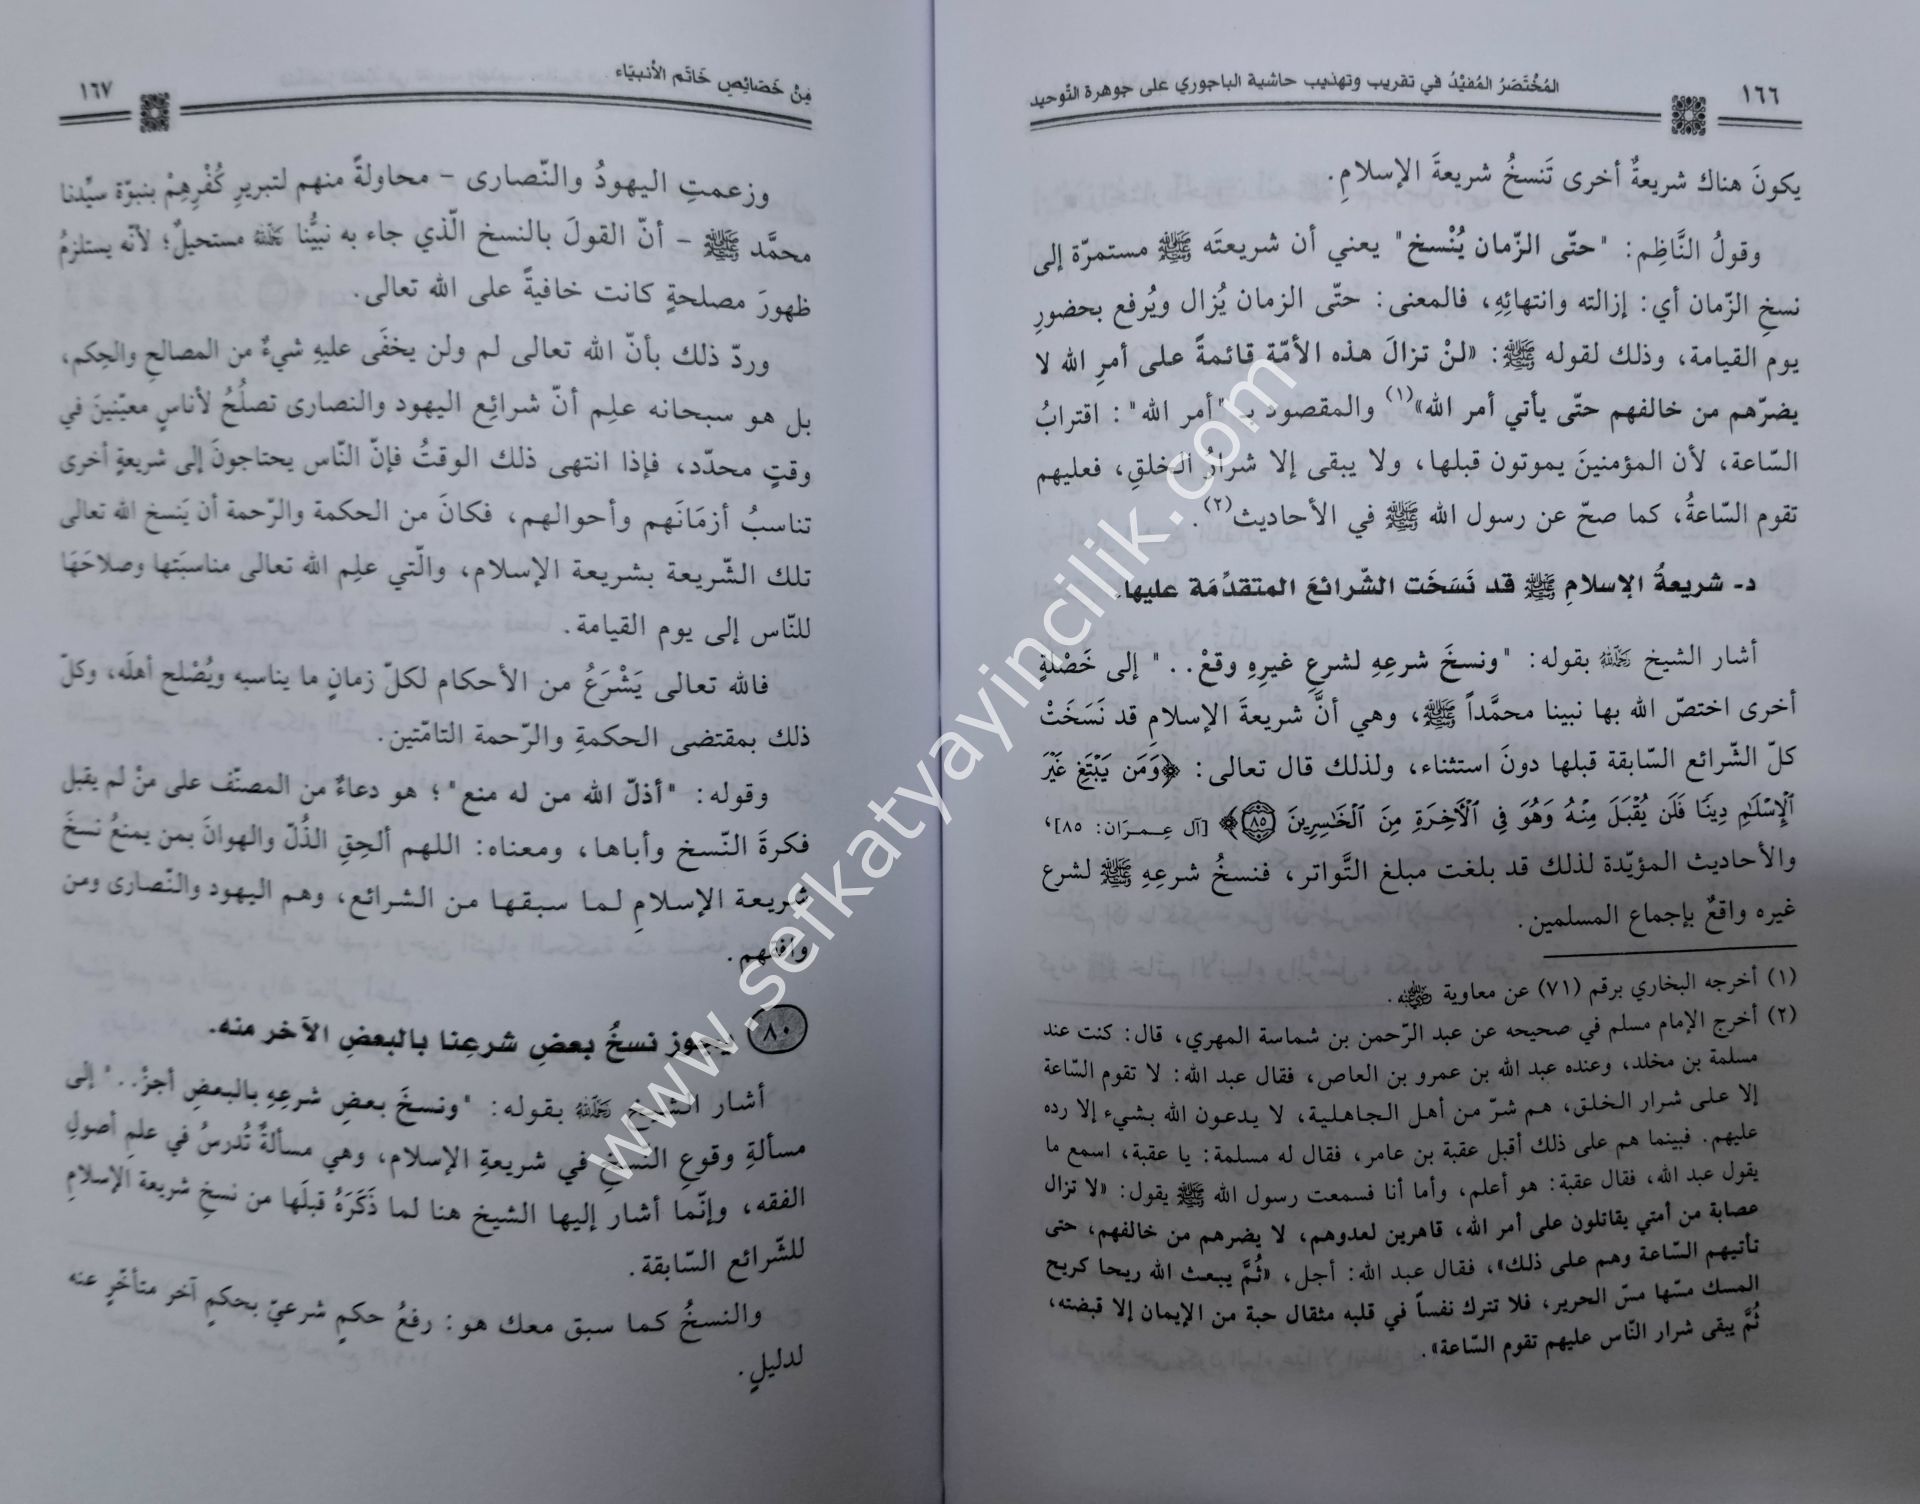 ١٦٦
المُخْتَصَرُ المُفيْدُ في تقريب وتهذيب حاشية الباجوري على جوهرة التّوحيد
يكونَ هناك شريعةٌ أخرى تَنسخُ شريعةَ الإسلامِ.
وقولُ النَّاظِم: "حتّى الزّمان يُنْسخ" يعني أن شريعتَه ﷺ مستمرّة إلى
نسخِ الزّمان أي: إزالته وانتهائِهِ، فالمعنى: حتّى الزمان يُزال ويُرفع بحضورِ
يوم القيامة، وذلك لقوله ﷺ: «لنْ تزالَ هذه الأمّة قائمةً على أمرِ الله لا
يضرّهم من خالفهم حتّى يأتي أمر الله»(١) والمقصود بـ "أمر الله": اقترابُ
السّاعة، لأن المؤمنينَ يموتون قبلها، ولا يبقى إلا شرارُ الخلقِ، فعليهم
تقوم السّاعةُ، كما صحّ عن رسول الله ﷺ في الأحاديث(٢).
د- شريعةُ الإسلامِ ﷺ قد نَسَخَت الشّرائعَ المتقدِّمَة عليها.
أشار الشيخ رَحِمَهُ اللهُ بقوله: "ونسخَ شرعِهِ لشرعِ غيرِهِ وقعْ.." إلى خَصْلةٍ
أخرى اختصّ الله بها نبينا محمَّداً ﷺ، وهي أنَّ شريعةَ الإسلامِ قد نَسَخَتْ
كلّ الشّرائع السّابقة قبلها دونَ استثناء، ولذلك قال تعالى: ﴿وَمَن يَبْتَغِ غَيْرَ
ٱلْإِسْلَٰمِ دِينًا فَلَن يُقْبَلَ مِنْهُ وَهُوَ فِي ٱلْآخِرَةِ مِنَ ٱلْخَٰسِرِينَ ۝٨٥﴾ [آل عِـمرَان: ٨٥]،
والأحاديث المؤيّدة لذلك قد بلغت مبلغ التَّواتر، فنسخُ شرعِهِ ﷺ لشرع
غيره واقعٌ بإجماع المسلمين.
(١) أخرجه البخاري برقم (٧١) عن معاوية رضي الله عنه.
(٢) أخرج الإمام مسلم في صحيحه عن عبد الرّحمن بن شماسة المهري، قال: كنت عند
مسلمة بن مخلد، وعنده عبد الله بن عمرو بن العاص، فقال عبد الله: لا تقوم السّاعة
إلا على شرار الخلق، هم شرّ من أهل الجاهلية، لا يدعون الله بشيء إلا رده
عليهم. فبينما هم على ذلك أقبل عقبة بن عامر، فقال له مسلمة: يا عقبة، اسمع ما
يقول عبد الله، فقال عقبة: هو أعلم، وأما أنا فسمعت رسول الله ﷺ يقول: «لا تزال
عصابة من أمتي يقاتلون على أمر الله، قاهرين لعدوهم، لا يضرهم من خالفهم، حتى
تأتيهم السّاعة وهم على ذلك»، فقال عبد الله: أجل، «ثُمَّ يبعث الله ريحا كريح
المسك مسّها مسّ الحرير، فلا تترك نفساً في قلبه مثقال حبة من الإيمان إلا قبضته،
ثُمَّ يبقى شرار النّاس عليهم تقوم السّاعة».
مِنْ خَصَائِصِ خَاتَم الأنبيَاء
١٦٧
وزعمتِ اليهودُ والنّصارى - محاولةً منهم لتبريرِ كُفْرِهِمْ بنبوّة سيِّدنا
محمَّد ﷺ - أنّ القولَ بالنسخ الّذي جاء به نبيُّنا ﷺ مستحيلٌ؛ لأنّه يستلزمُ
ظهورَ مصلحةٍ كانت خافيةً على الله تعالى.
وردّ ذلك بأنّ الله تعالى لم ولن يخفَى عليهِ شيءٌ من المصالحِ والحِكم،
بل هو سبحانه علِم أنّ شرائِع اليهود والنصارى تصلُحُ لأناسٍ معيّنينَ في
وقتٍ محدّد، فإذا انتهى ذلك الوقتُ فإنّ النّاس يحتاجونَ إلى شريعةٍ أخرى
تناسبُ أزمَانَهم وأحوالهم، فكانَ من الحكمة والرّحمة أن يَنسخ الله تعالى
تلك الشّريعة بشريعة الإسلام، والّتي علِم الله تعالى مناسبَتها وصلاحَهَا
للنّاس إلى يوم القيامة.
فالله تعالى يَشْرَعُ من الأحكام لكلّ زمانٍ ما يناسبه ويُصْلح أهلَه، وكلّ
ذلك بمقتضى الحكمةِ والرّحمة التامّتين.
وقوله: "أذلّ الله من له منع"؛ هو دعاءٌ من المصنّف على منْ لم يقبل
فكرةَ النّسخ وأباها، ومعناه: اللهم ألحِقِ الذُّلّ والهوانَ بمن يمنعُ نسخَ
شريعة الإسلامِ لما سبقها من الشرائع، وهم اليهود والنّصارى ومن
وافقهم.
٨٠ يجوز نسخُ بعضِ شرعِنا بالبعضِ الآخر منه.
أشار الشيخ رَحِمَهُ اللهُ بقوله: "ونسخَ بعضِ شرعِهِ بالبعضِ أجزْ.." إلى
مسألةِ وقوعِ النّسْخِ في شريعةِ الإسلام، وهي مسألةٌ تُدرسُ في علمِ أصولِ
الفقه، وإنّما أشار إليها الشيخ هنا لما ذَكَرَهُ قبلَها من نسخِ شريعة الإسلامِ
للشّرائع السّابقة.
والنسخُ كما سبق معك هو: رفعُ حكمٍ شرعيّ بحكمٍ آخر متأخّرٍ عنه
لدليلٍ.
www.sefkatyayincilik.com